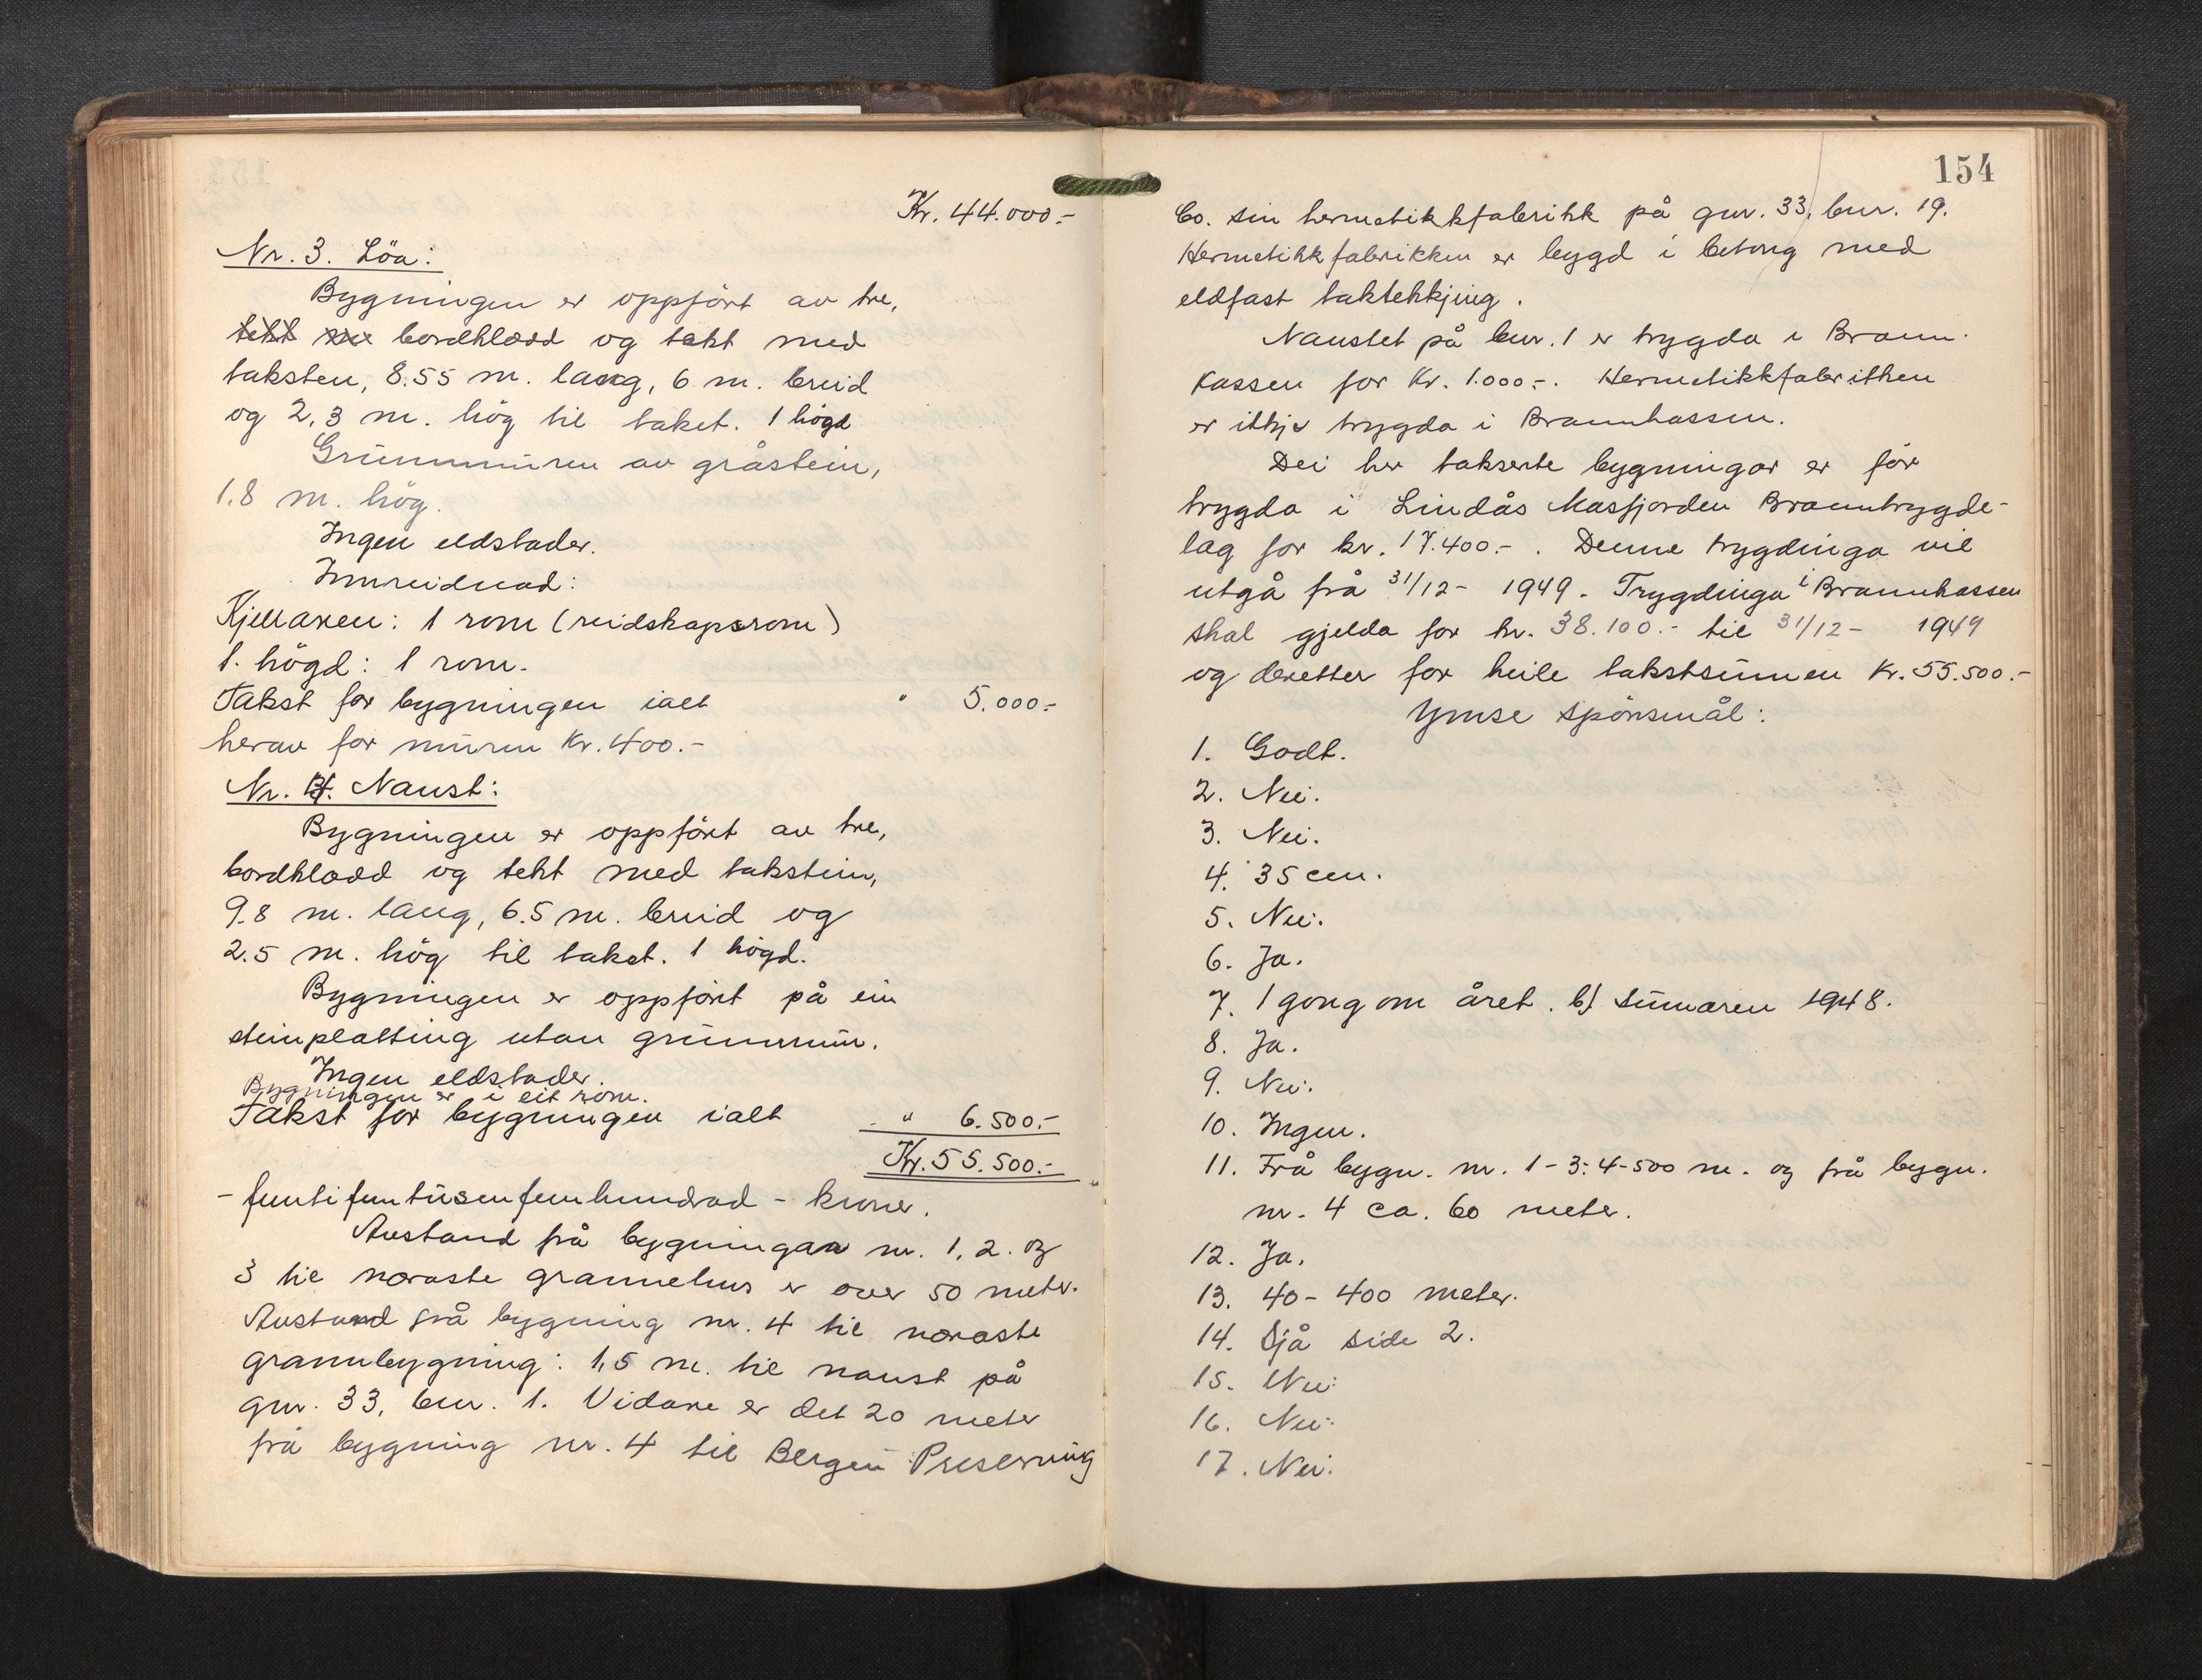 Kr. 44.000.-
Nr. 3. Löa:
Bygningen er oppfört av tre,
tekt me bordklædd og tekt med
taksten, 8.55 m. lang, 6 m. breid
og 2,3 m. hög til taket. 1 högd
Grunnmuren av gråstein,
1.8 m. hög.
Ingen eldstader.
Innreidnad:
Kjellaren: 1 rom (reidskapsrom)
1. högd: 1 rom.
Takst for bygningen ialt " 5.000.-
herav for muren Kr. 400.-
Nr. 4. Naust:
Bygningen er oppfört av tre,
bordklædd og tekt med takstein,
9.8 m. lang, 6.5 m. breid og
2.5 m. hög til taket. 1 högd.
Bygningen er oppfört på ein
steinplatting utan grunnmur.
Ingen eldstader.
Bygningen er i eit rom.
Takst for bygningen ialt " 6.500.-
Kr. 55.500.-
- femtifemtusenfemhundrad - kroner.
Avstand frå bygningar nr. 1, 2. og
3 til næraste grannehus er over 50 meter.
Avstand frå bygning nr. 4 til næraste
grannbygning: 1,5 m. til naust på
gnr. 33, bnr. 1. Vidare er det 20 meter
frå bygning nr. 4 til Bergen Preserving
154
Co. sin hermetikkfabrikk på gnr. 33, bnr. 19.
Hermetikkfabrikken er bygd i betong med
eldfast taktekkjing.
Naustet på bnr. 1 er trygda i Brann-
kassen for Kr. 1.000.-. Hermetikkfabrikken
er ikkje trygda i Brannkassen.
Dei her takserte bygningar er för
trygda i Lindås Masfjorden Branntrygde-
lag for kr. 17.400.-. Denne trygdinga vil
utgå frå 31/12- 1949. Trygdinga i Brannkassen
skal gjelda for kr. 38.100.- til 31/12- 1949
og deretter for heile takstsummen Kr. 55.500.-
Ymse spörsmål:
1. Godt.
2. Nei.
3. Nei.
4. 35 cm.
5. Nei.
6. Ja.
7. 1 gong om året. b/ Sumaren 1948.
8. Ja.
9. Nei.
10. Ingen.
11. Frå bygn. nr. 1-3: 4-500 m. og frå bygn.
nr. 4 ca. 60 meter.
12. Ja.
13. 40-400 meter.
14. Sjå side 2.
15. Nei.
16. Nei.
17. Nei.